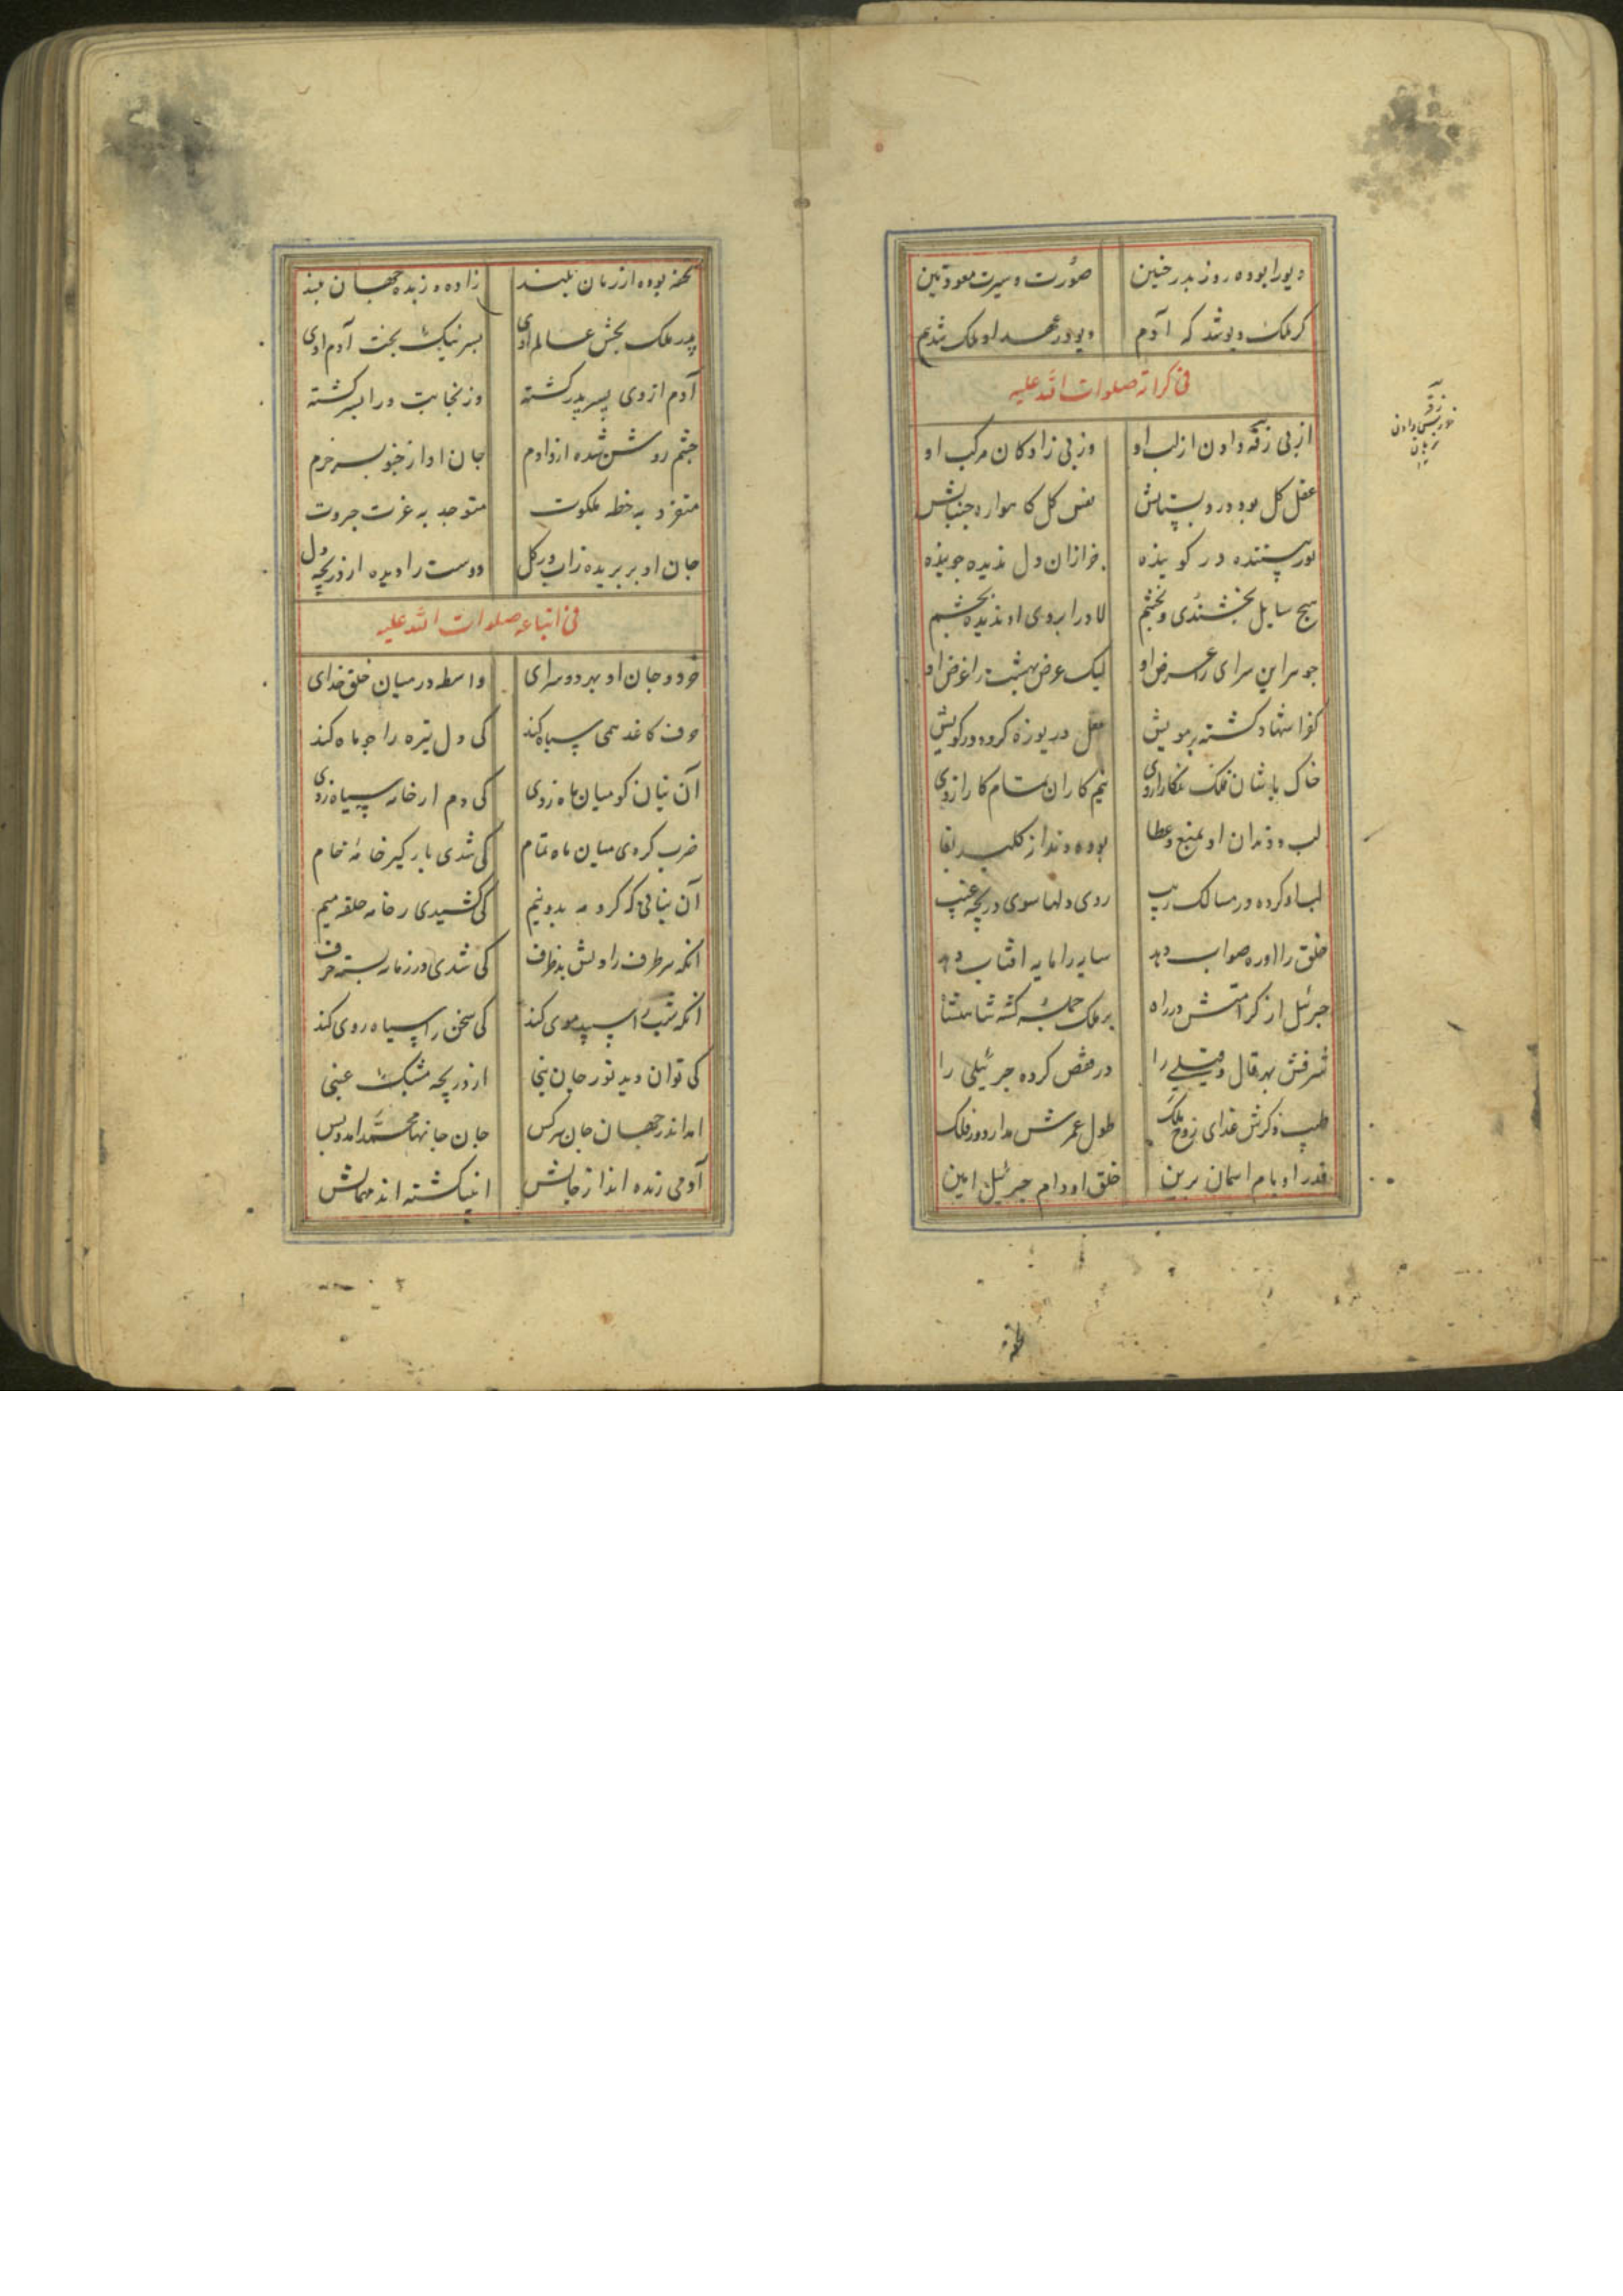 دیو را بوده روز بدر حنین صورت و سیرت معوذتین
کر ملک دیو شد که آدم دیو در عهد او ملک شد هم
فی کرامة صلوات الله علیه
از پی زقه دادن از لب او وز پی زادکان مرکب او
عقل کل بوده در دبستانش نفس کل کاهواره جنبانش
نور بیننده در کوینده خرازان دل ندیده جوینده
هیچ سایل بخشندی و بخشم لا در ابروی او ندیده بچشم
جوهر این سرای را عرض او لیک عرض بهشت را غرض او
کوا شهاد کشته بر مویش عقل دریوزه کرده در کویش
خاک پاشان فلک نکار ازوی نیم کاران تمام کار ازوی
لب و دندان او بمنع و عطا بوده دندانه کلید بقا
لب او کرده در مسالک ریب روی دلها سوی دریچه غیب
خلق را او ره صواب دهد سایه را مایه افتاب دهد
جبرئیل از کرامتش در راه بر ملک جمله کشته شاهنشاه
شرفش بهر قال و قیلی را در قفص کرده جبرئیلی را
طیب ذکرش غذای روح ملک طول عمرش مدار دور فلک
قدر او بام اسمان برین خلق او دام جبرئیل امین
زقه
خورش دادن
بزبان
تحفه بوده از زمان بلند زاده و زبده جهان
پدر ملک بخش عالم اوی پسر نیک بخت آدم اوی
آدم از وی پسر پدر کشته وز نجابت ورا پسر کشته
چشم روشن شده ازو آدم جان او از خوبسر خرم
متفرد به خطه ملکوت متوحد به عزت جبروت
جان او بر پریده زاب و ز کل دوست را دیده از دریچه دل
فی اتباعه صلوات الله علیه
خود و جان او بهر دو سرای واسطه در میان خلق خدای
حرف کاغذ همی سیاه کند کی دل تیره را چو ماه کند
آن بنان کو میان ماه زدی کی دم از خامه سیاه زدی
ضرب کردی میان ماه تمام کی شدی بار کیر خامه خام
آن بنانی که کرد مه بدو نیم کی کشیدی ز خامه حلقه میم
انکه هر طرف راولش بد ظرف کی شدی در زمانه بسته حرف
انکه شب را سپید موی کند کی سخن را سیاه روی کند
کی توان دید نور جان نبی از دریچه مشبک عنبی
امد اندر جهان جان هرکس جان جانها محمد امد و بس
آدمی زنده اند از جانش انبیا کشته اند مهمانش